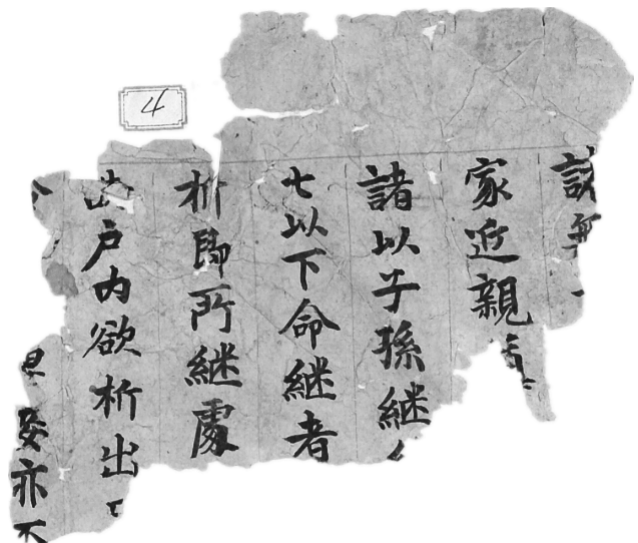 4
家近親
諸以子孫継
七以下命継者
析即所継處
戶内欲析出
妾亦不